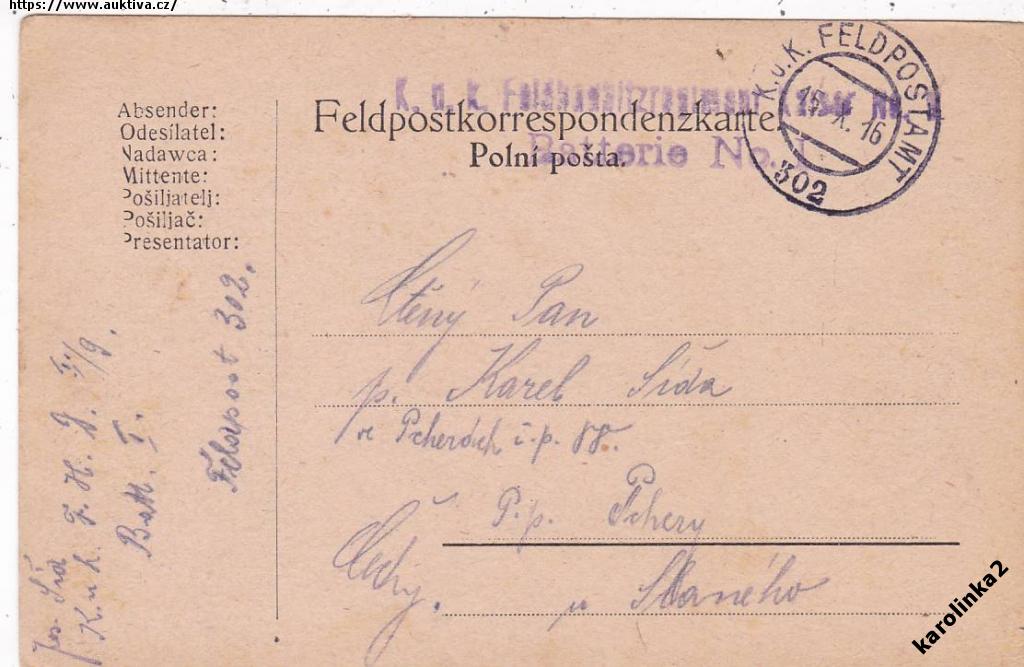 https://www.auktiva.cz/
K. u. K. FELDPOSTAMT
15. X. 16
302
K. u. k. Feldhaubitzregiment No.
Batterie No. 1
Feldpostkorrespondenzkarte.
Polní pošta.
Absender:
Odesílatel:
Nadawca:
Mittente:
Pošiljatelj:
Pošiljač:
Presentator:
Jos. Šíd
K. u. k. F. H. D.
Batt. I.
Feldpost 302.
Ctěný Pan
p. Karel Šída
ve Pcherách č. p. 88.
P. p. Pchery
u Slaného
Čechy.
karolinka2